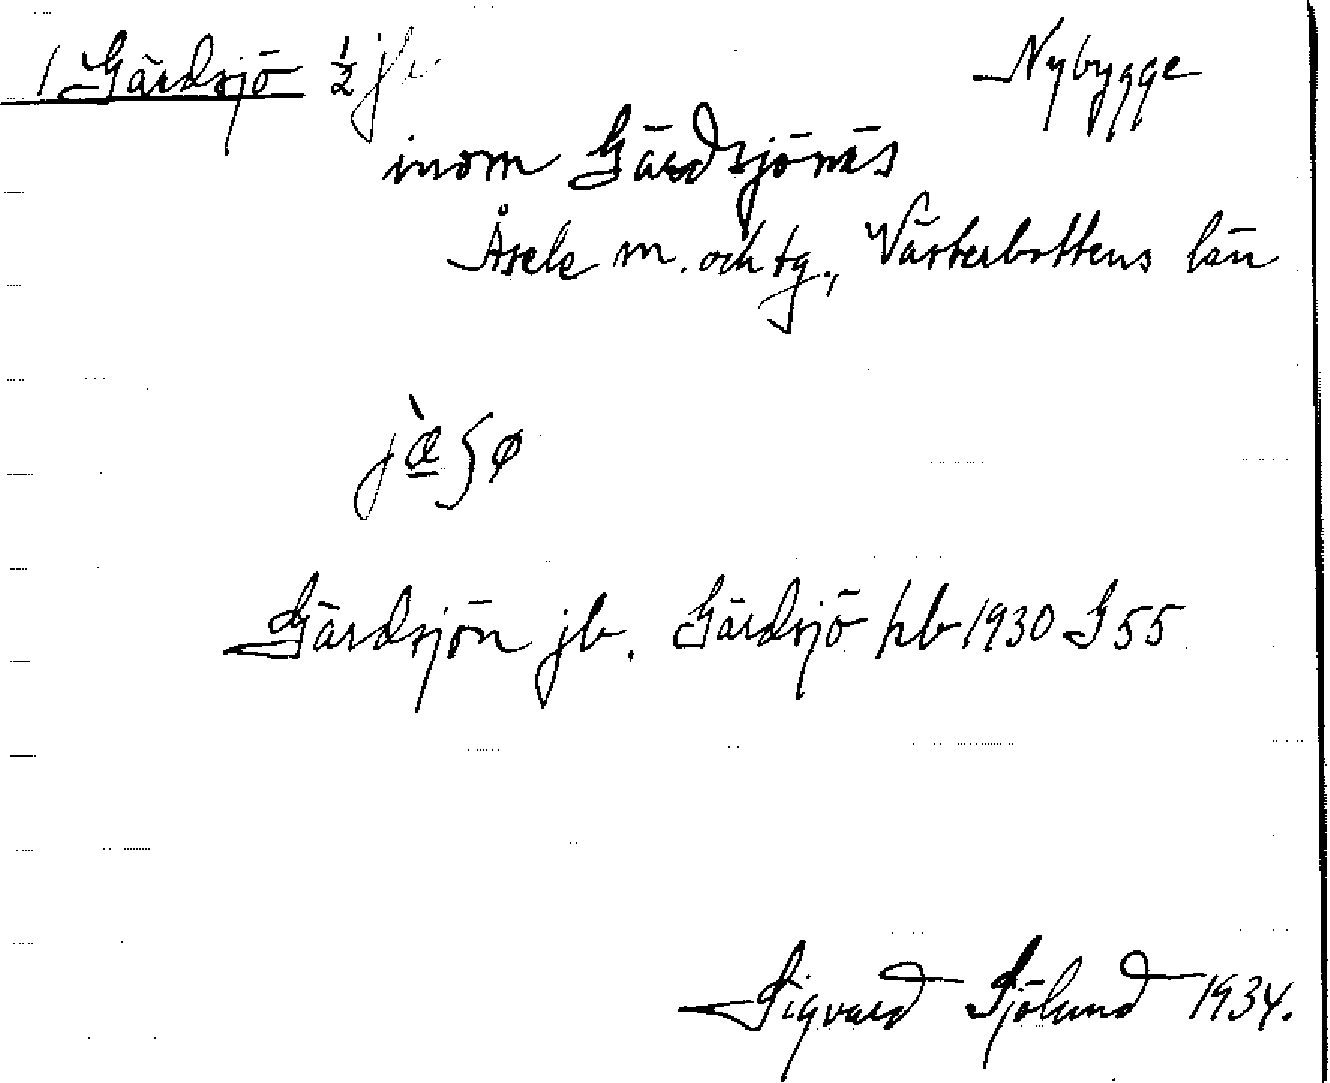 1 Gärdsjö ½ jb. Nybygge
inom Gärdsjönäs
Åsele m. och tg., Västerbottens län
Gärdsjön jb. Gärdsjö hb 1930 S 55
Sigvard Sjölund 1934.